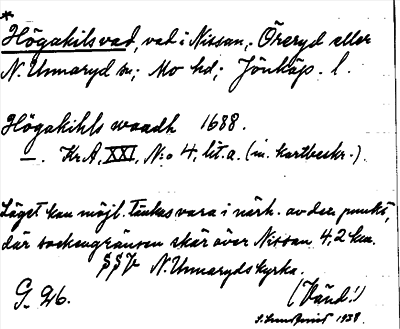 *
Högakilsvad, vad i Nissan, Öreryd eller
N. Unnaryd sn; Mo hd; Jönköp. l.
Högakihls waadh 1688.
—. Kr.A, XXI, N:o 4, lit. a. (m. kartbeskr.).
Läget kan möjl. tänkas vara i närh. av den punkt,
där sockengränsen skär över Nissan 4,2 km.
SSV N. Unnaryds kyrka.
G. 26. (Vänd!)
S. Lundqvist 1938